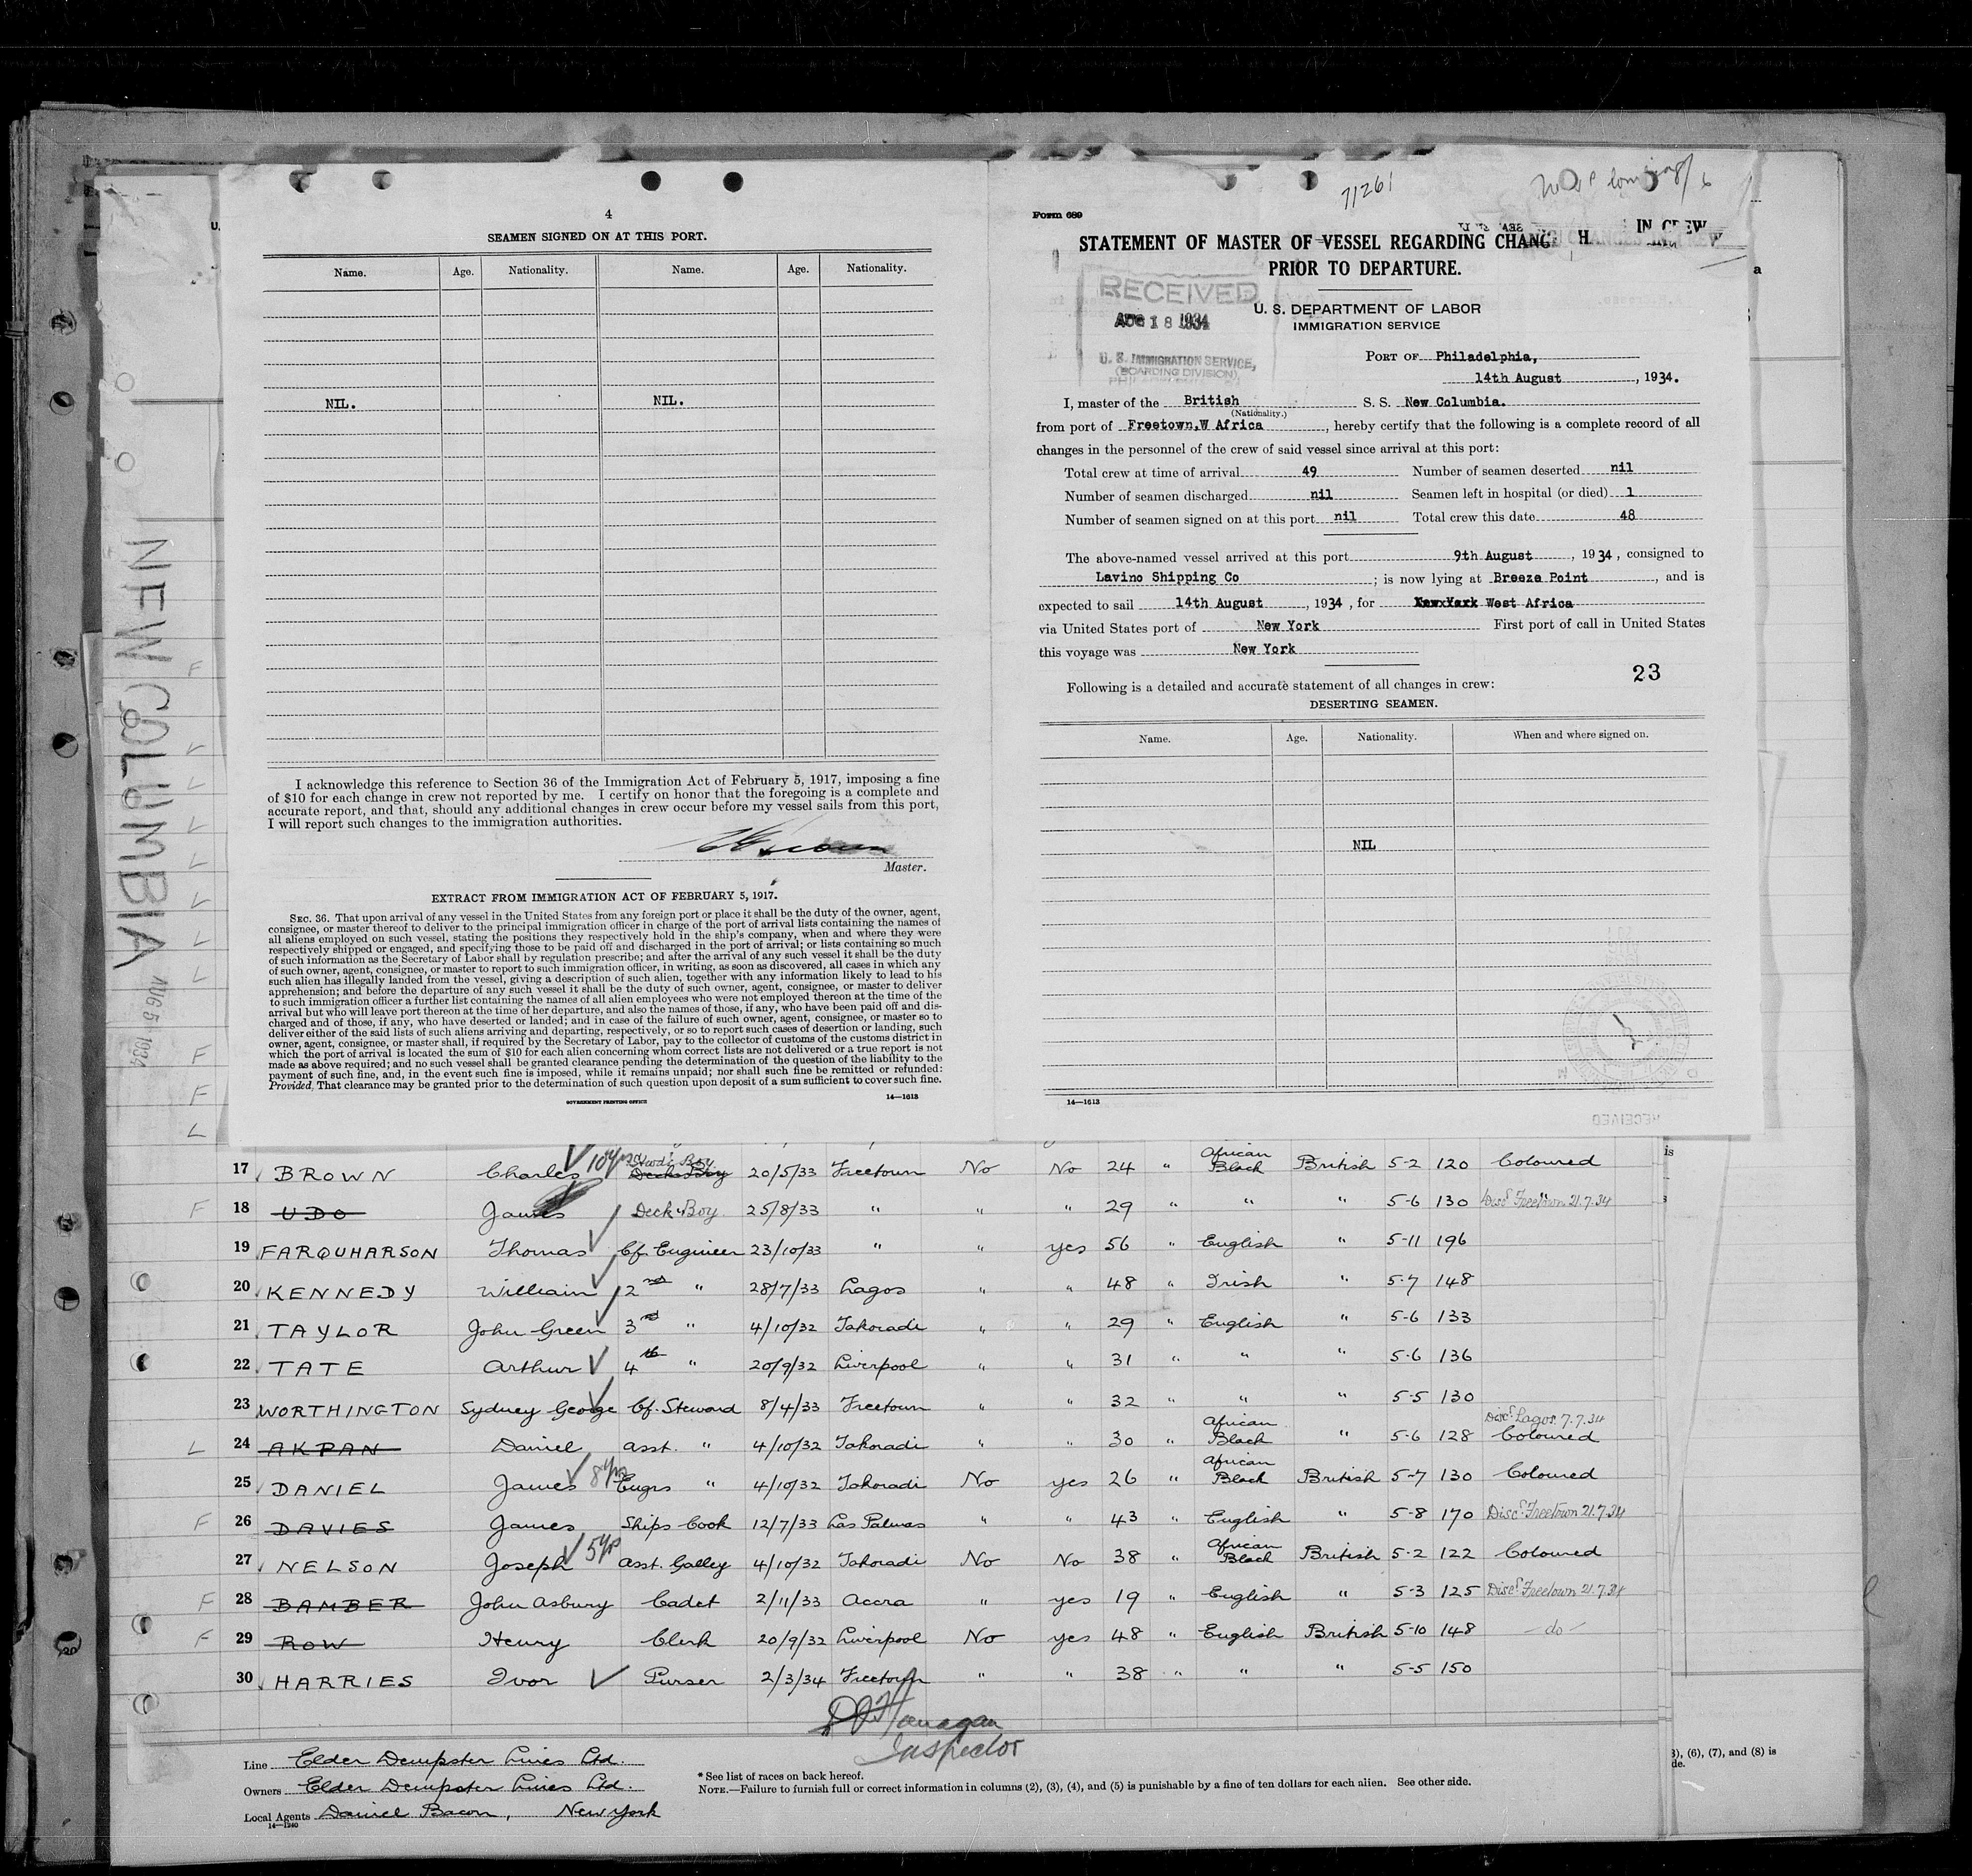 4
SEAMEN SIGNED ON AT THIS PORT.
Name. Age. Nationality. Name. Age. Nationality.
NIL. NIL.
I acknowledge this reference to Section 36 of the Immigration Act of February 5, 1917, imposing a fine
of $10 for each change in crew not reported by me. I certify on honor that the foregoing is a complete and
accurate report, and that, should any additional changes in crew occur before my vessel sails from this port,
I will report such changes to the immigration authorities.
Master.
EXTRACT FROM IMMIGRATION ACT OF FEBRUARY 5, 1917.
SEC. 36. That upon arrival of any vessel in the United States from any foreign port or place it shall be the duty of the owner, agent,
consignee, or master thereof to deliver to the principal immigration officer in charge of the port of arrival lists containing the names of
all aliens employed on such vessel, stating the positions they respectively hold in the ship's company, when and where they were
respectively shipped or engaged, and specifying those to be paid off and discharged in the port of arrival; or lists containing so much
of such information as the Secretary of Labor shall by regulation prescribe; and after the arrival of any such vessel it shall be the duty
of such owner, agent, consignee, or master to report to such immigration officer, in writing, as soon as discovered, all cases in which any
such alien has illegally landed from the vessel, giving a description of such alien, together with any information likely to lead to his
apprehension; and before the departure of any such vessel it shall be the duty of such owner, agent, consignee, or master to deliver
to such immigration officer a further list containing the names of all alien employees who were not employed thereon at the time of the
arrival but who will leave port thereon at the time of her departure, and also the names of those, if any, who have been paid off and dis-
charged and of those, if any, who have deserted or landed; and in case of the failure of such owner, agent, consignee, or master so to
deliver either of the said lists of such aliens arriving and departing, respectively, or so to report such cases of desertion or landing, such
owner, agent, consignee, or master shall, if required by the Secretary of Labor, pay to the collector of customs of the customs district in
which the port of arrival is located the sum of $10 for each alien concerning whom correct lists are not delivered or a true report is not
made as above required; and no such vessel shall be granted clearance pending the determination of the question of the liability to the
payment of such fine, and, in the event such fine is imposed, while it remains unpaid; nor shall such fine be remitted or refunded:
Provided, That clearance may be granted prior to the determination of such question upon deposit of a sum sufficient to cover such fine.
GOVERNMENT PRINTING OFFICE 14—1613
71261
Form 689
STATEMENT OF MASTER OF VESSEL REGARDING CHANG IN CREW
PRIOR TO DEPARTURE.
RECEIVED
AUG 18 1934
U. S. IMMIGRATION SERVICE,
(BOARDING DIVISION)
U. S. DEPARTMENT OF LABOR
IMMIGRATION SERVICE
PORT OF Philadelphia,
14th August, 1934.
I, master of the British S. S. New Columbia.
(Nationality.)
from port of Freetown,W Africa, hereby certify that the following is a complete record of all
changes in the personnel of the crew of said vessel since arrival at this port:
Total crew at time of arrival 49 Number of seamen deserted nil
Number of seamen discharged nil Seamen left in hospital (or died) 1
Number of seamen signed on at this port nil Total crew this date 48
The above-named vessel arrived at this port 9th August, 1934, consigned to
Lavino Shipping Co; is now lying at Breeze Point, and is
expected to sail 14th August, 1934, for New York West Africa
via United States port of New York First port of call in United States
this voyage was New York
23
Following is a detailed and accurate statement of all changes in crew:
DESERTING SEAMEN.
Name. Age. Nationality. When and where signed on.
NIL
14—1613
NEW COLUMBIA AUG 5 1934
17 BROWN Charles 10 yrs Deck Boy 20/5/33 Freetown No No 24 " African Black British 5-2 120 Coloured
F 18 UDO James Deck Boy 25/8/33 " " " 29 " " " 5-6 130 Disc. Freetown 21.7.34
19 FARQUHARSON Thomas Cf. Engineer 23/10/33 " " yes 56 " English " 5-11 196
20 KENNEDY William 2nd " 28/7/33 Lagos " " 48 " Irish " 5-7 148
21 TAYLOR John Green 3rd " 4/10/32 Takoradi " " 29 " English " 5-6 133
22 TATE Arthur 4th " 20/9/32 Liverpool " " 31 " " " 5-6 136
23 WORTHINGTON Sydney George Cf. Steward 8/4/33 Freetown " " 32 " " " 5-5 130
L 24 AKPAN Daniel asst. " 4/10/32 Takoradi " " 30 " African Black " 5-6 128 Disc. Lagos 7.7.34 Coloured
25 DANIEL James 8 yrs Engrs " 4/10/32 Takoradi No yes 26 " African Black British 5-7 130 Coloured
F 26 DAVIES James Ships Cook 12/7/33 Las Palmas " " 43 " English " 5-8 170 Disc. Freetown 21.7.34
27 NELSON Joseph 5 yrs asst. Galley 4/10/32 Takoradi No No 38 " African Black British 5-2 122 Coloured
F 28 BAMBER John Asbury Cadet 2/11/33 Accra " yes 19 " English " 5-3 125 Disc. Freetown 21.7.34
F 29 ROW Henry Clerk 20/9/32 Liverpool No yes 48 " English British 5-10 148 -do-
30 HARRIES Ivor Purser 2/3/34 Freetown " " 38 " " " 5-5 150
Flanagan
Inspector
Line Elder Dempster Lines Ltd.
Owners Elder Dempster Lines Ltd.
Local Agents Daniel Bacon, New York
14—1240
* See list of races on back hereof.
NOTE.—Failure to furnish full or correct information in columns (2), (3), (4), and (5) is punishable by a fine of ten dollars for each alien. See other side.
3), (6), (7), and (8) is
de.